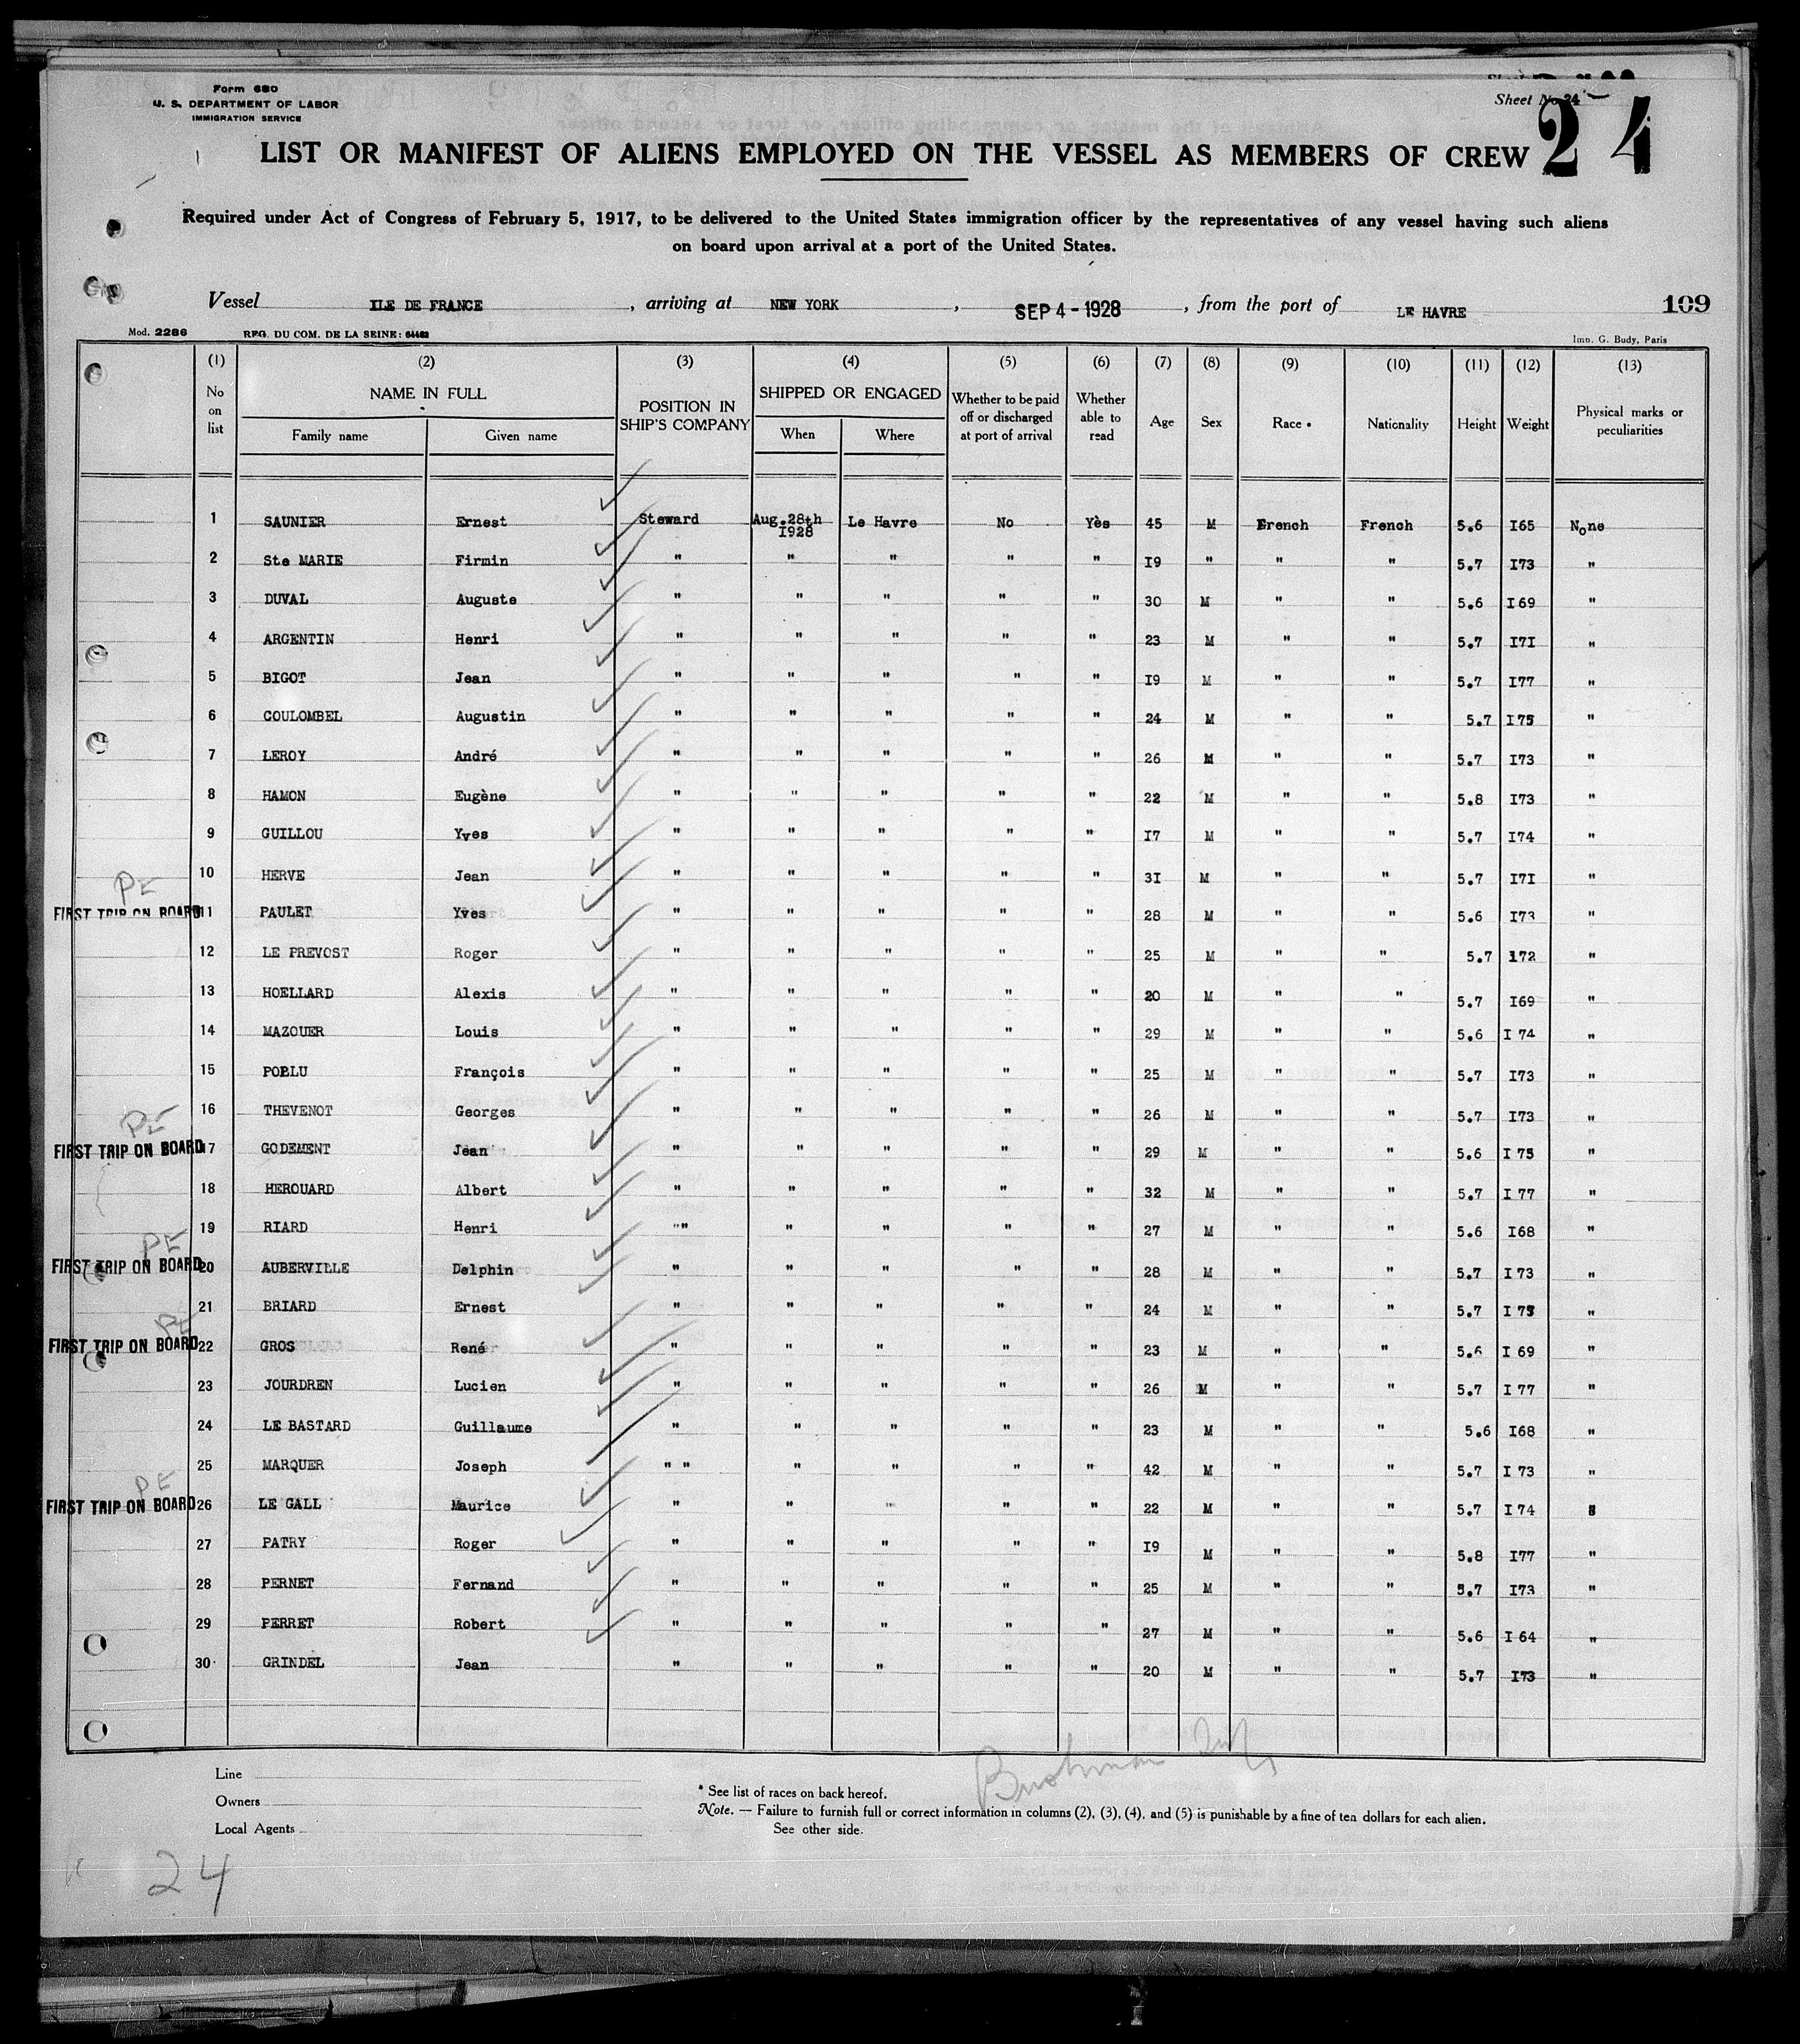 Form 680
U. S. DEPARTMENT OF LABOR
IMMIGRATION SERVICE
Sheet No 24
24
LIST OR MANIFEST OF ALIENS EMPLOYED ON THE VESSEL AS MEMBERS OF CREW
Required under Act of Congress of February 5, 1917, to be delivered to the United States immigration officer by the representatives of any vessel having such aliens
on board upon arrival at a port of the United States.
Vessel ILE DE FRANCE , arriving at NEW YORK , SEP 4 - 1928 , from the port of LE HAVRE 109
Mod. 2286 REG. DU COM. DE LA SEINE: 64462 Imp. G. Budy, Paris
(1) (2) (3) (4) (5) (6) (7) (8) (9) (10) (11) (12) (13)
No on list NAME IN FULL Family name Given name POSITION IN SHIP'S COMPANY SHIPPED OR ENGAGED When Where Whether to be paid off or discharged at port of arrival Whether able to read Age Sex Race * Nationality Height Weight Physical marks or peculiarities
1 SAUNIER Ernest Steward Aug.28th 1928 Le Havre No Yès 45 M French French 5.6 I65 None
2 Ste MARIE Firmin " " " " " I9 " " " 5.7 I73 "
3 DUVAL Auguste " " " " " 30 M " " 5.6 I69 "
4 ARGENTIN Henri " " " " " 23 M " " 5.7 I7I "
5 BIGOT Jean " " " " " I9 M " " 5.7 I77 "
6 COULOMBEL Augustin " " " " " 24 M " " 5.7 I75 "
7 LEROY André " " " " " 26 M " " 5.7 I73 "
8 HAMON Eugène " " " " " 22 M " " 5.8 I73 "
9 GUILLOU Yves " " " " " I7 M " " 5.7 I74 "
10 HERVE Jean " " " " " 3I M " " 5.7 I7I "
PE
FIRST TRIP ON BOARD 11 PAULET Yves " " " " " 28 M " " 5.6 I73 "
12 LE PREVOST Roger " " " " " 25 M " " 5.7 172 "
13 HOELLARD Alexis " " " " " 20 M " " 5.7 I69 "
14 MAZOUER Louis " " " " " 29 M " " 5.6 I 74 "
15 POELU François " " " " " 25 M " " 5.7 I73 "
16 THEVENOT Georges " " " " " 26 M " " 5.7 I73 "
PE
FIRST TRIP ON BOARD 17 GODEMENT Jean " " " " " 29 M " " 5.6 I 75 "
18 HEROUARD Albert " " " " " 32 M " " 5.7 I 77 "
19 RIARD Henri "" " " " " 27 M " " 5.6 I68 "
PE
FIRST TRIP ON BOARD 20 AUBERVILLE Delphin " " " " " 28 M " " 5.7 I 73 "
21 BRIARD Ernest " " " " " 24 M " " 5.7 I 75 "
PE
FIRST TRIP ON BOARD 22 GROS René " " " " " 23 M " " 5.6 I 69 "
23 JOURDREN Lucien " " " " " 26 M " " 5.7 I 77 "
24 LE BASTARD Guillaume " " " " " 23 M " " 5.6 I68 "
25 MARQUER Joseph " " " " " " 42 M " " 5.7 I 73 "
PE
FIRST TRIP ON BOARD 26 LE GALL Maurice " " " " " 22 M " " 5.7 I 74 "
27 PATRY Roger " " " " " I9 M " " 5.8 I77 "
28 PERNET Fernand " " " " " 25 M " " 5.7 I73 "
29 PERRET Robert " " " " " 27 M " " 5.6 I 64 "
30 GRINDEL Jean " " " " " 20 M " " 5.7 I73 "
Line
Owners
Local Agents
* See list of races on back hereof.
Note. — Failure to furnish full or correct information in columns (2), (3), (4), and (5) is punishable by a fine of ten dollars for each alien.
See other side.
24